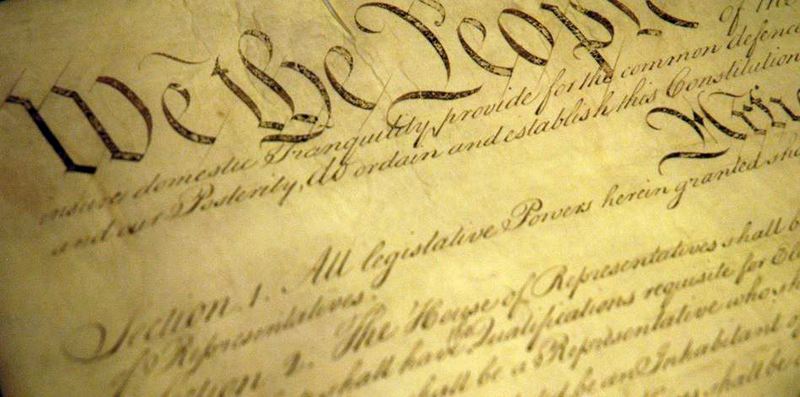 We the People of the
insure domestic Tranquility, provide for the common defence
and our Posterity, do ordain and establish this Constitution
Section. 1. All legislative Powers herein granted sha
of Representatives.
Section. 2. The House of Representatives shall b
shall have Qualifications requisite for Ele
shall be a Representative who sh
be an Inhabitant of
shall be